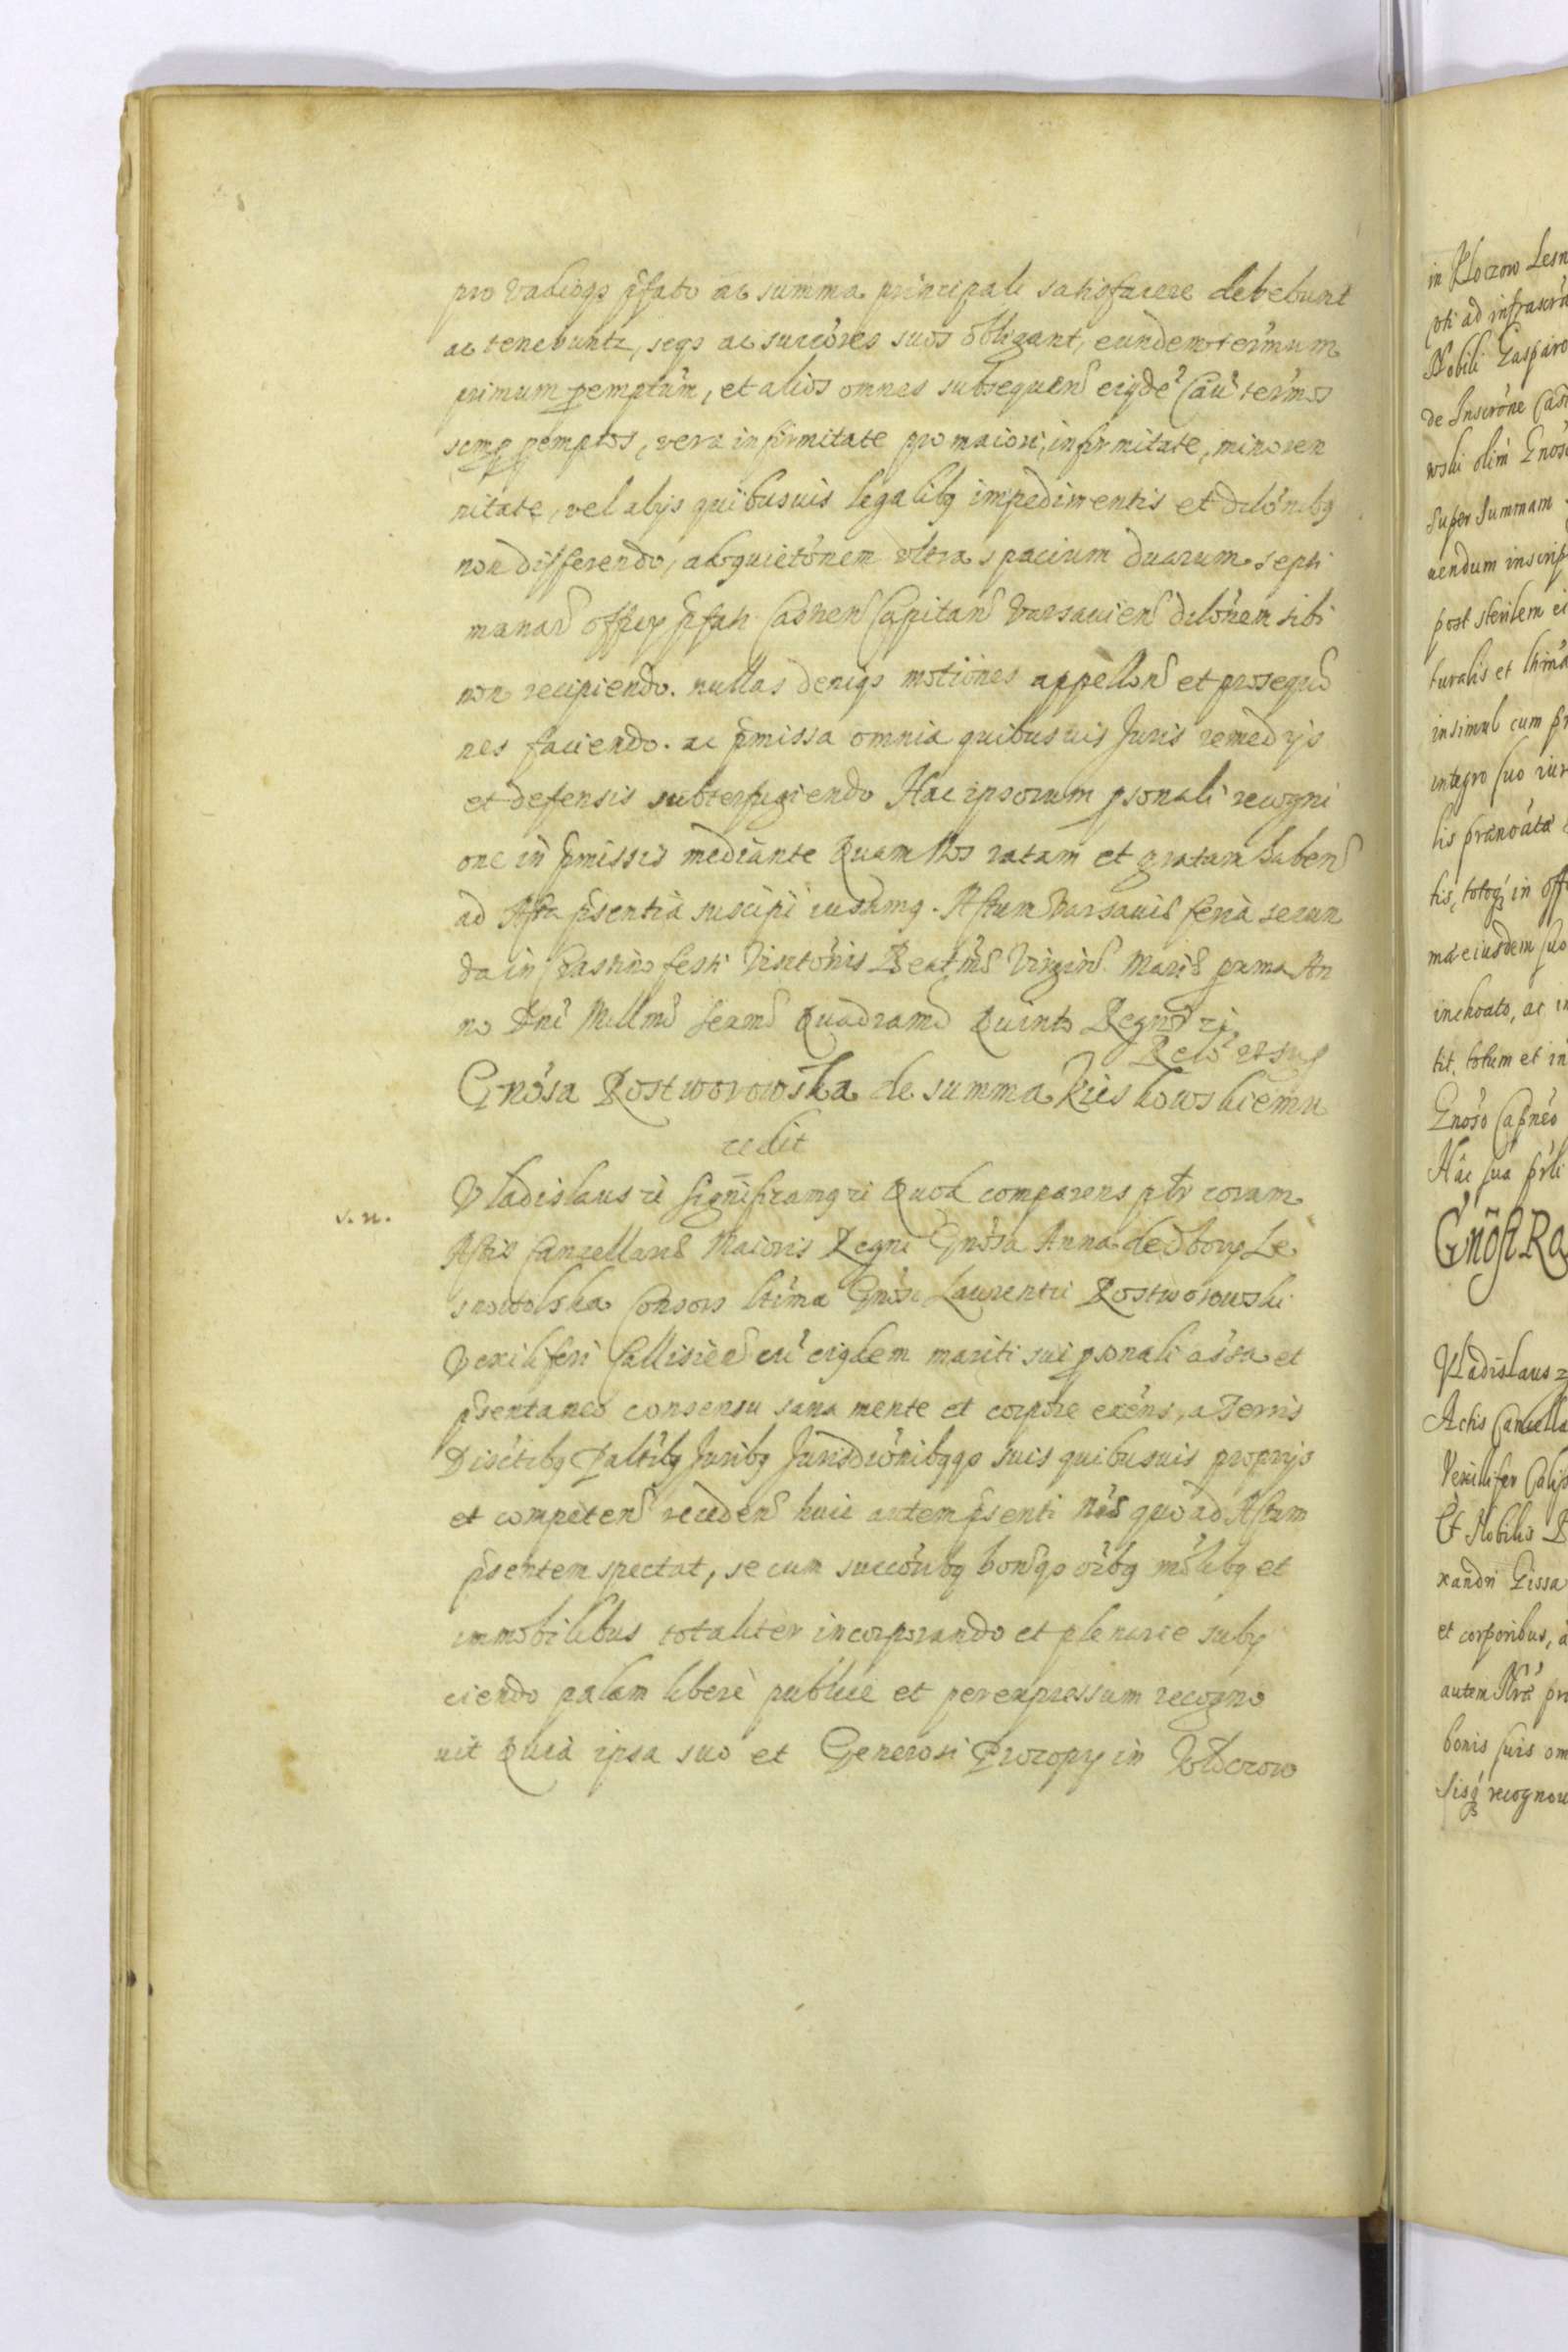 pro vadioqz pfato ac summa principali satisfacere debebunt
ac tenebuntr, seqz ac succores suos obligant, eundem termum
primum pemptum, et alios omnes subsequen eiusde cau termos
semp pemptos, vera infirmitate pro maiori, infirmitate, minoren
nitate, vel alijs quibusuis legalibq impedimentis et dilonibq
non differendo, adquietonem vltra spacium duarum septi
manar officy pfati Castren Capitan Varsauien dilonem sibi
non recipiendo. nullas deniqz motiones appellon et prosequo
nes faciendo. ac pmissa omnia quibusuis Juris remedijs
et defensis subterfugiendo Hac ipsorum psonali recogni
one in pmissis mediante Quam Nos ratam et gratam haben
ad Acta psentia suscipi iussimq. Actum Varsauie feria secun
da in Crastino festi Visitonis Beatme Virgin Marie pxma An
no Dni Millmo sexmo Quadramo Quinto Regn zj
Relo vt sup
Gnosa Rostworowska de summa Kieskowskiemu
cedit
v. n.
Vladislaus zc significamq zc Quod comparens pltr coram
Actis Cancellarie Maioris Regni Gnosa Anna de Obory Le
snowolska Consors ltima Gnosi Laurentii Rostworowski
Vexiliferi Callisien cu eiqdem mariti sui psonali assa et
psentaneo consensu sana mente et corpore exens, a Terris
Disctibq Paltibq Juribq Jurisdionibqqz suis quibusuis proprijs
et competen receden huic autem psenti nro quo ad Actum
psentem spectat, se cum succoribq bonisqz oibq mobilibq et
immobilibus totaliter incorporando et plenarie suby
ciendo palam liberè publicè et per expressum recogno
uit Quia ipsa suo et Generosi Procopy in Kloczow

in Kloczow Lesn
ad infrascri
Nobili Gasparo
de Inscrone Cast
wski olim Gnos
super summam
uendum inscrip
post sterilem ei
turalis et ltima
insimul cum pr
integro suo iur
lis pranotata
tis, totoqz in off
ma eiusdem suo
inchoato, ac in
tit. totum et in
Gnoso Capneo
Hac sua prti
Gnosi Ra
Vladislaus z
Actis Cancella
Vexillifer Calis
Et Nobilis
xandri Gissa
et corporibus, a
autem Nro pr
bonis suis om
sisqz recognou